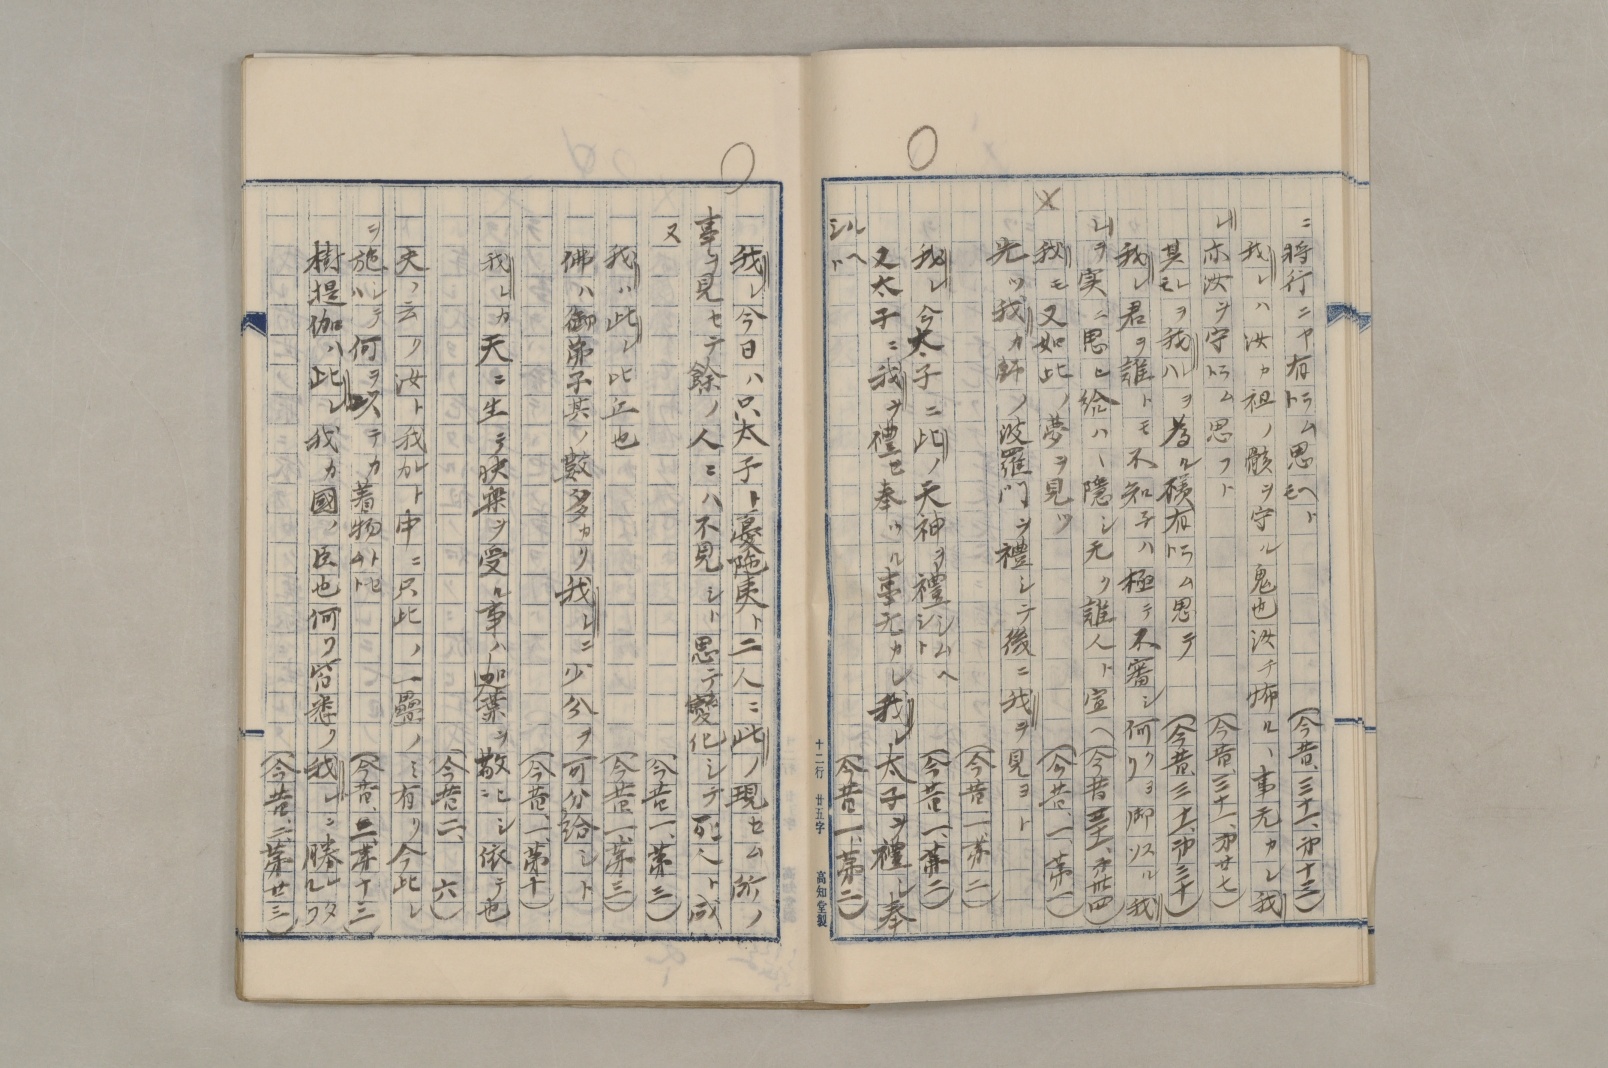 ニ将行ニヤ有ラム思ヘトモ (今昔、三十一、第十三)
我レハ汝カ祖ノ骸ヲ守ル鬼也汝チ怖ルヽ事无カレ我
レ亦汝ヲ守ラム思フト (今昔、三十一、第廿七)
其レヲ我レハ 有ラム思テ (今昔、三十一、第三十)
我レ君ヲ誰トモ不知ネハ極テ不審シ何クヨ御ソスル我
レヲ実ニ思ヒ給ハヽ隠シ无ク誰人ト宣ヘ
我モ又如此ノ夢ヲ見ツ (今昔、一、第一)
先ツ我カ師ノ波羅門ヲ禮シテ後ニ我ヲ見ヨト
(今昔一第二)
我レ今太子ニ此ノ天神ヲ禮シムヘシト (今昔一、第二)
又太子ニ我ヲ禮セ奉ツル事无カレ我レ太子ヲ禮シ奉
ルヘシト (今昔一、第二)
十二行 廿五字 高知堂製
我レ今日ハ只太子ト憂陀夷ト二人ニ此ノ現セム所ノ
事ヲ見セテ餘ノ人ニハ不見シト思テ變化シテ死人ト成
又 (今昔一、第三)
我ハ此レ比丘也 (今昔一、第三)
佛ハ御弟子其ノ數多カリ我レニ少分ヲ可分給シト
(今昔、一、第十)
我レカ天ニ生テ快樂ヲ受ル事ハ迦葉ヲ敬ヒシ依テ也
(今昔二、六)
夫ノ云ク汝ト我カレト中ニ只此ノ一疊ノミ有リ今此レ
ヲ施シテハ何ヲ以テカ着物トセム (今昔、二、第十三)
樹提伽ハ此レ我カ國ノ臣也何ク皆悉ク我レニ勝レタルラク
(今昔、二、第廿三)